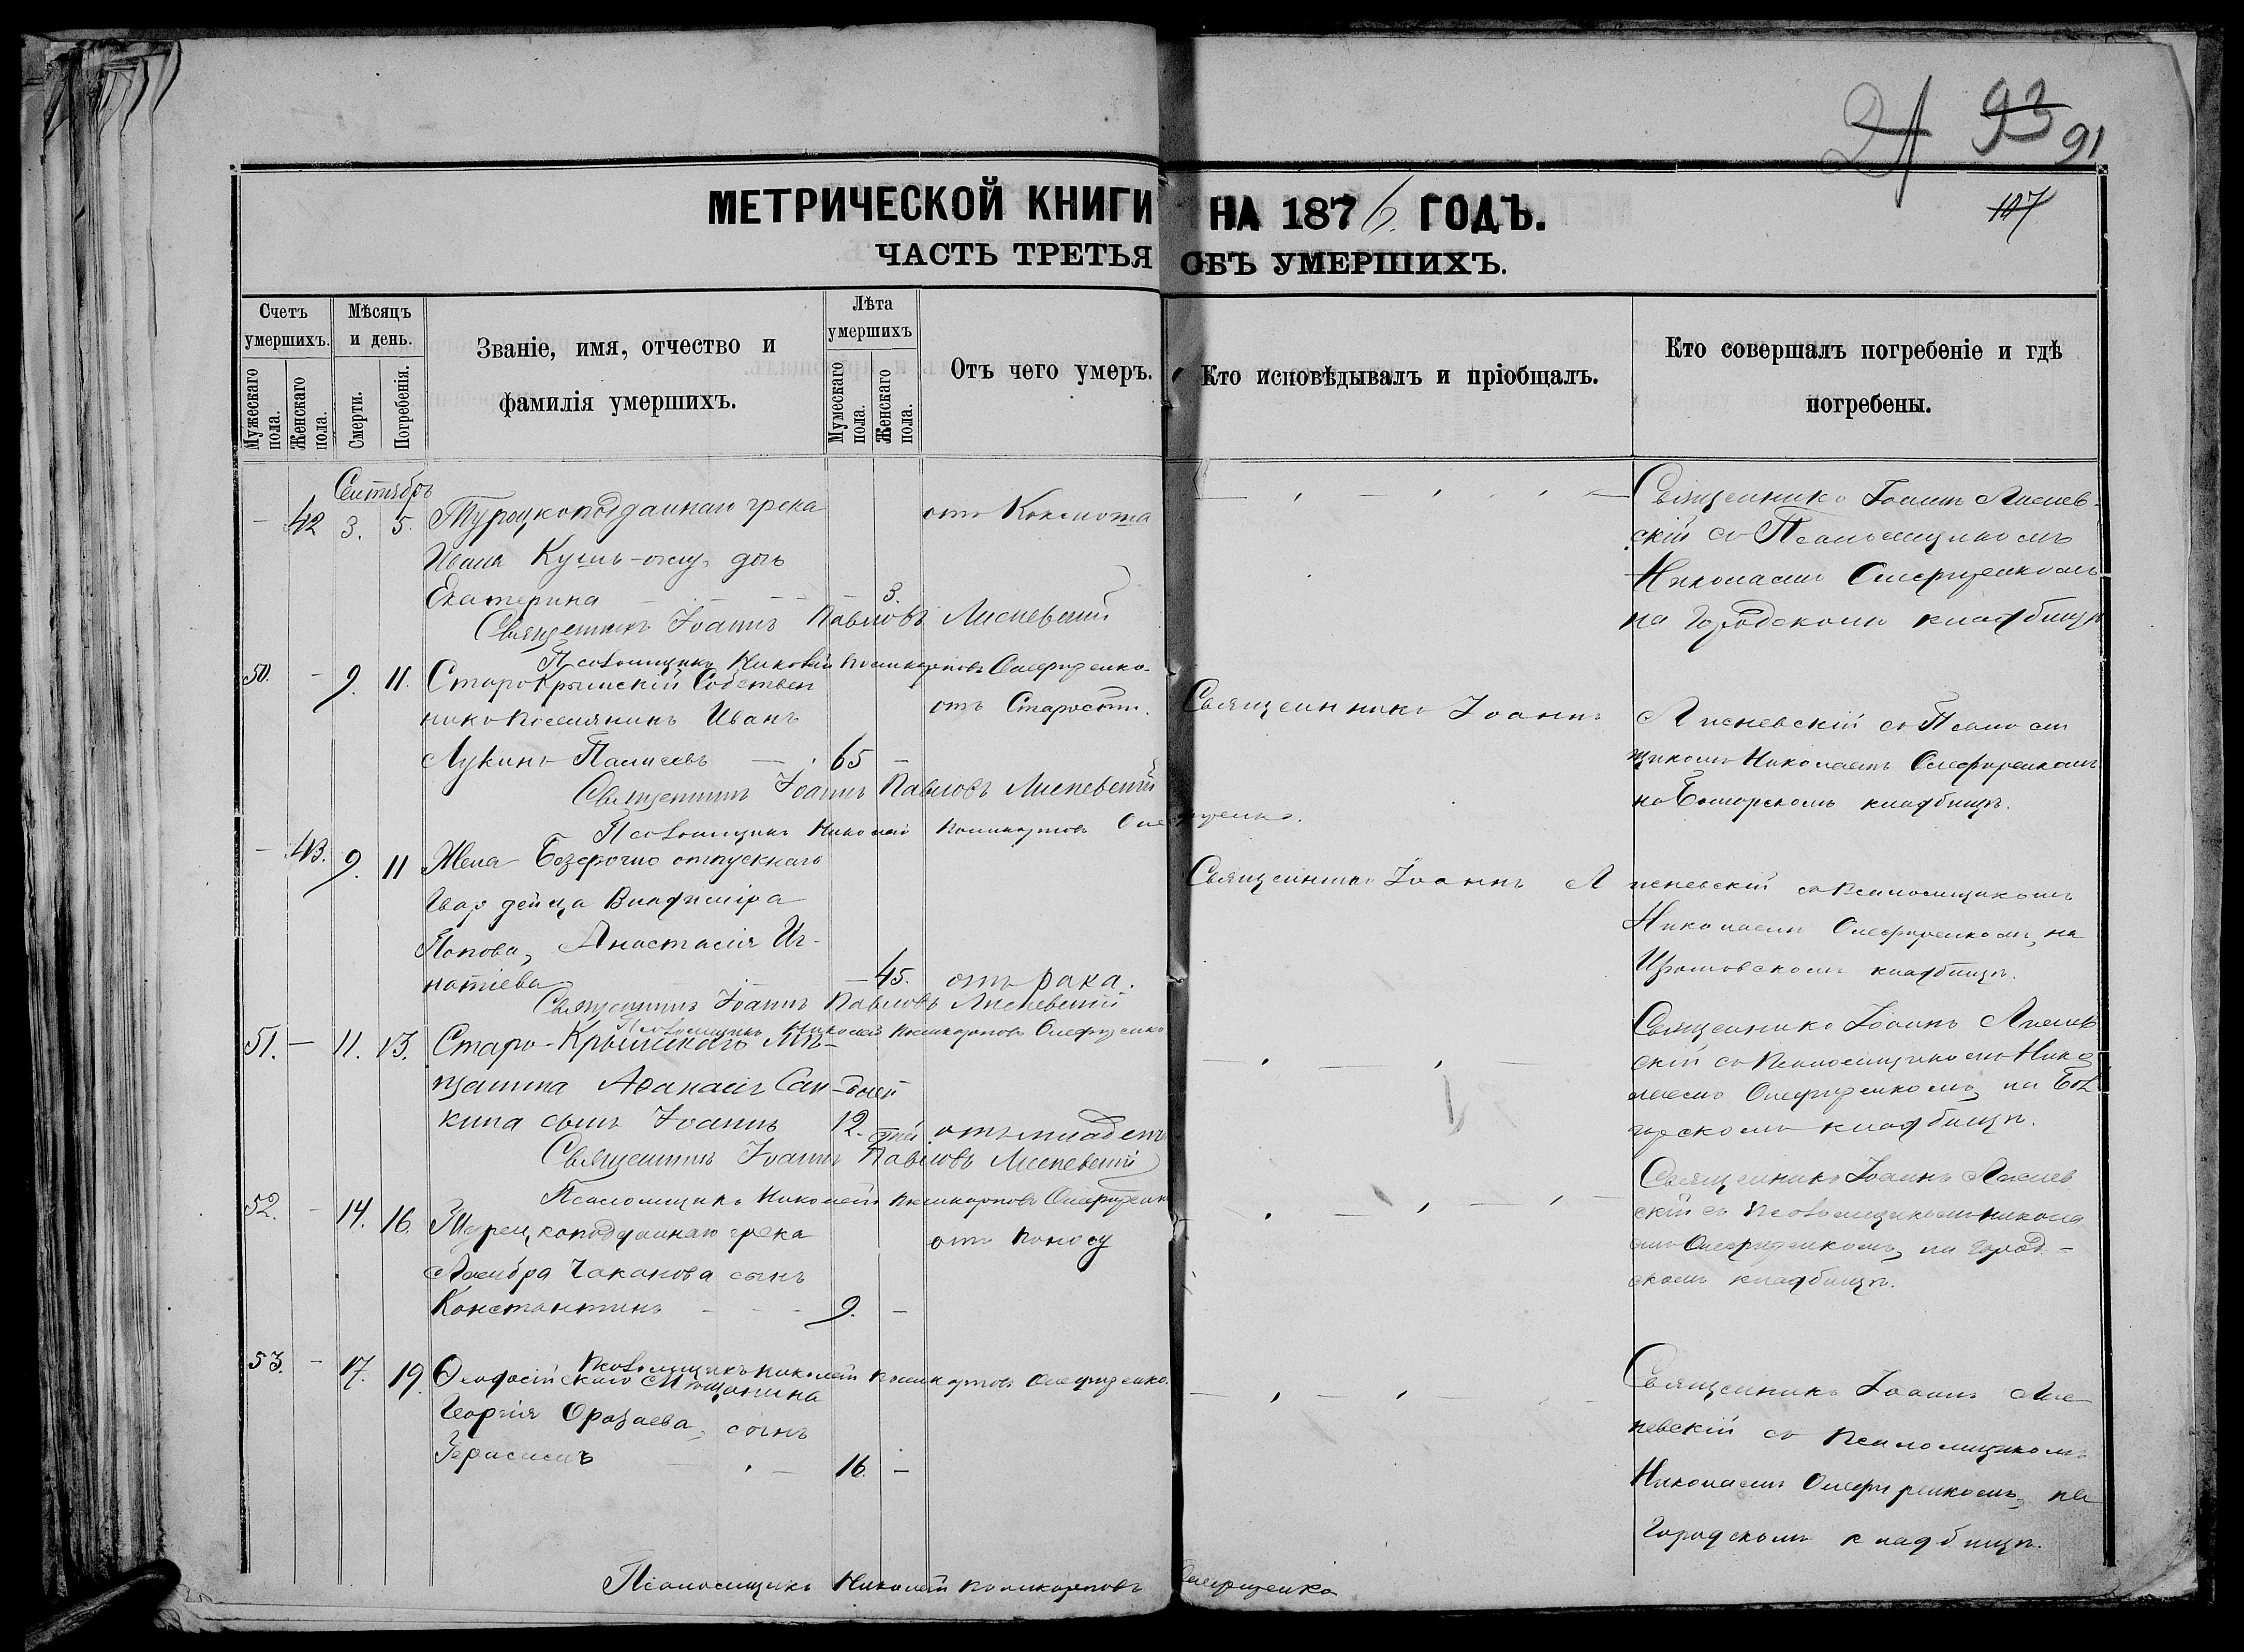 21 93 91
107
МЕТРИЧЕСКОЙ КНИГИ НА 1876 ГОДЪ.
ЧАСТЬ ТРЕТЬЯ ОБЪ УМЕРШИХЪ.
Счетъ умершихъ.
Мужескаго пола.
Женскаго пола.
Мѣсяцъ и день.
Смерти.
Погребенія.
Званіе, имя, отчество и
фамилія умершихъ.
Лѣта умершихъ
Мужескаго пола.
Женскаго пола.
Отъ чего умеръ.
Кто исповѣдывалъ и пріобщалъ.
Кто совершалъ погребеніе и гдѣ
погребены.
Сентябрь
- 42 3. 5. Турецкоподданнаго грека
Ивана дочь
Екатерина 3.
отъ Коклюша
Священникъ Іоаннъ Лиснев-
скій съ Псаломщикомъ
Николаемъ Олефиренкомъ
на Городскомъ кладбищѣ
Священникъ Іоаннъ Павловъ Лисневскій
Псаломщикъ Николай Поликарповъ Олефиренко
50. - 9. 11. Старокрымскій Собствен
никъ Поселянинъ Иванъ
Лукинъ 65 -
отъ Старости.
Священникъ Іоаннъ Лисневскій съ Псалом
щикомъ Николаемъ Олефиренкомъ
на кладбищѣ.
Священникъ Іоаннъ Павловъ Лисневскій
Псаломщикъ Николай Поликарповъ Олефиренко.
- 43. 9. 11 Жена Безсрочно отпускнаго
Гвардейца Владиміра
Попова, Анастасія Иг-
натіева 45. отъ рака.
Священникъ Іоаннъ Лисневскій съ Псаломщикомъ
Николаемъ Олефиренкомъ, на
кладбищѣ.
Священникъ Іоаннъ Павловъ Лисневскій
Псаломщикъ Николай Поликарповъ Олефиренко
51. - 11. 13. Старо-Крымскаго Мѣ-
щанина Аѳанасія Сан-
кина сынъ Іоаннъ 12. дней отъ младенч
Священникъ Іоаннъ Лиснев
скій съ Псаломщикомъ Нико
лаемъ Олефиренкомъ, на
кладбищѣ.
Священникъ Іоаннъ Павловъ Лисневскій
Псаломщикъ Николай Поликарповъ Олефиренко
52. - 14. 16. Турецкоподданнаго грека
Чаканова сынъ
Константинъ 9. -
отъ поносу
Священникъ Іоаннъ Лиснев
скій съ Псаломщикомъ Никола
емъ Олефиренкомъ, на Город-
скомъ кладбищѣ.
Псаломщикъ Николай Поликарповъ Олефиренко.
53. - 17. 19. Ѳеодосійскаго Мѣщанина
Георгія сынъ
Герасимъ 16. -
Священникъ Іоаннъ Лис
невскій съ Псаломщикомъ
Николаемъ Олефиренкомъ, на
Городскомъ кладбищѣ.
Псаломщикъ Николай Поликарповъ Олефиренко